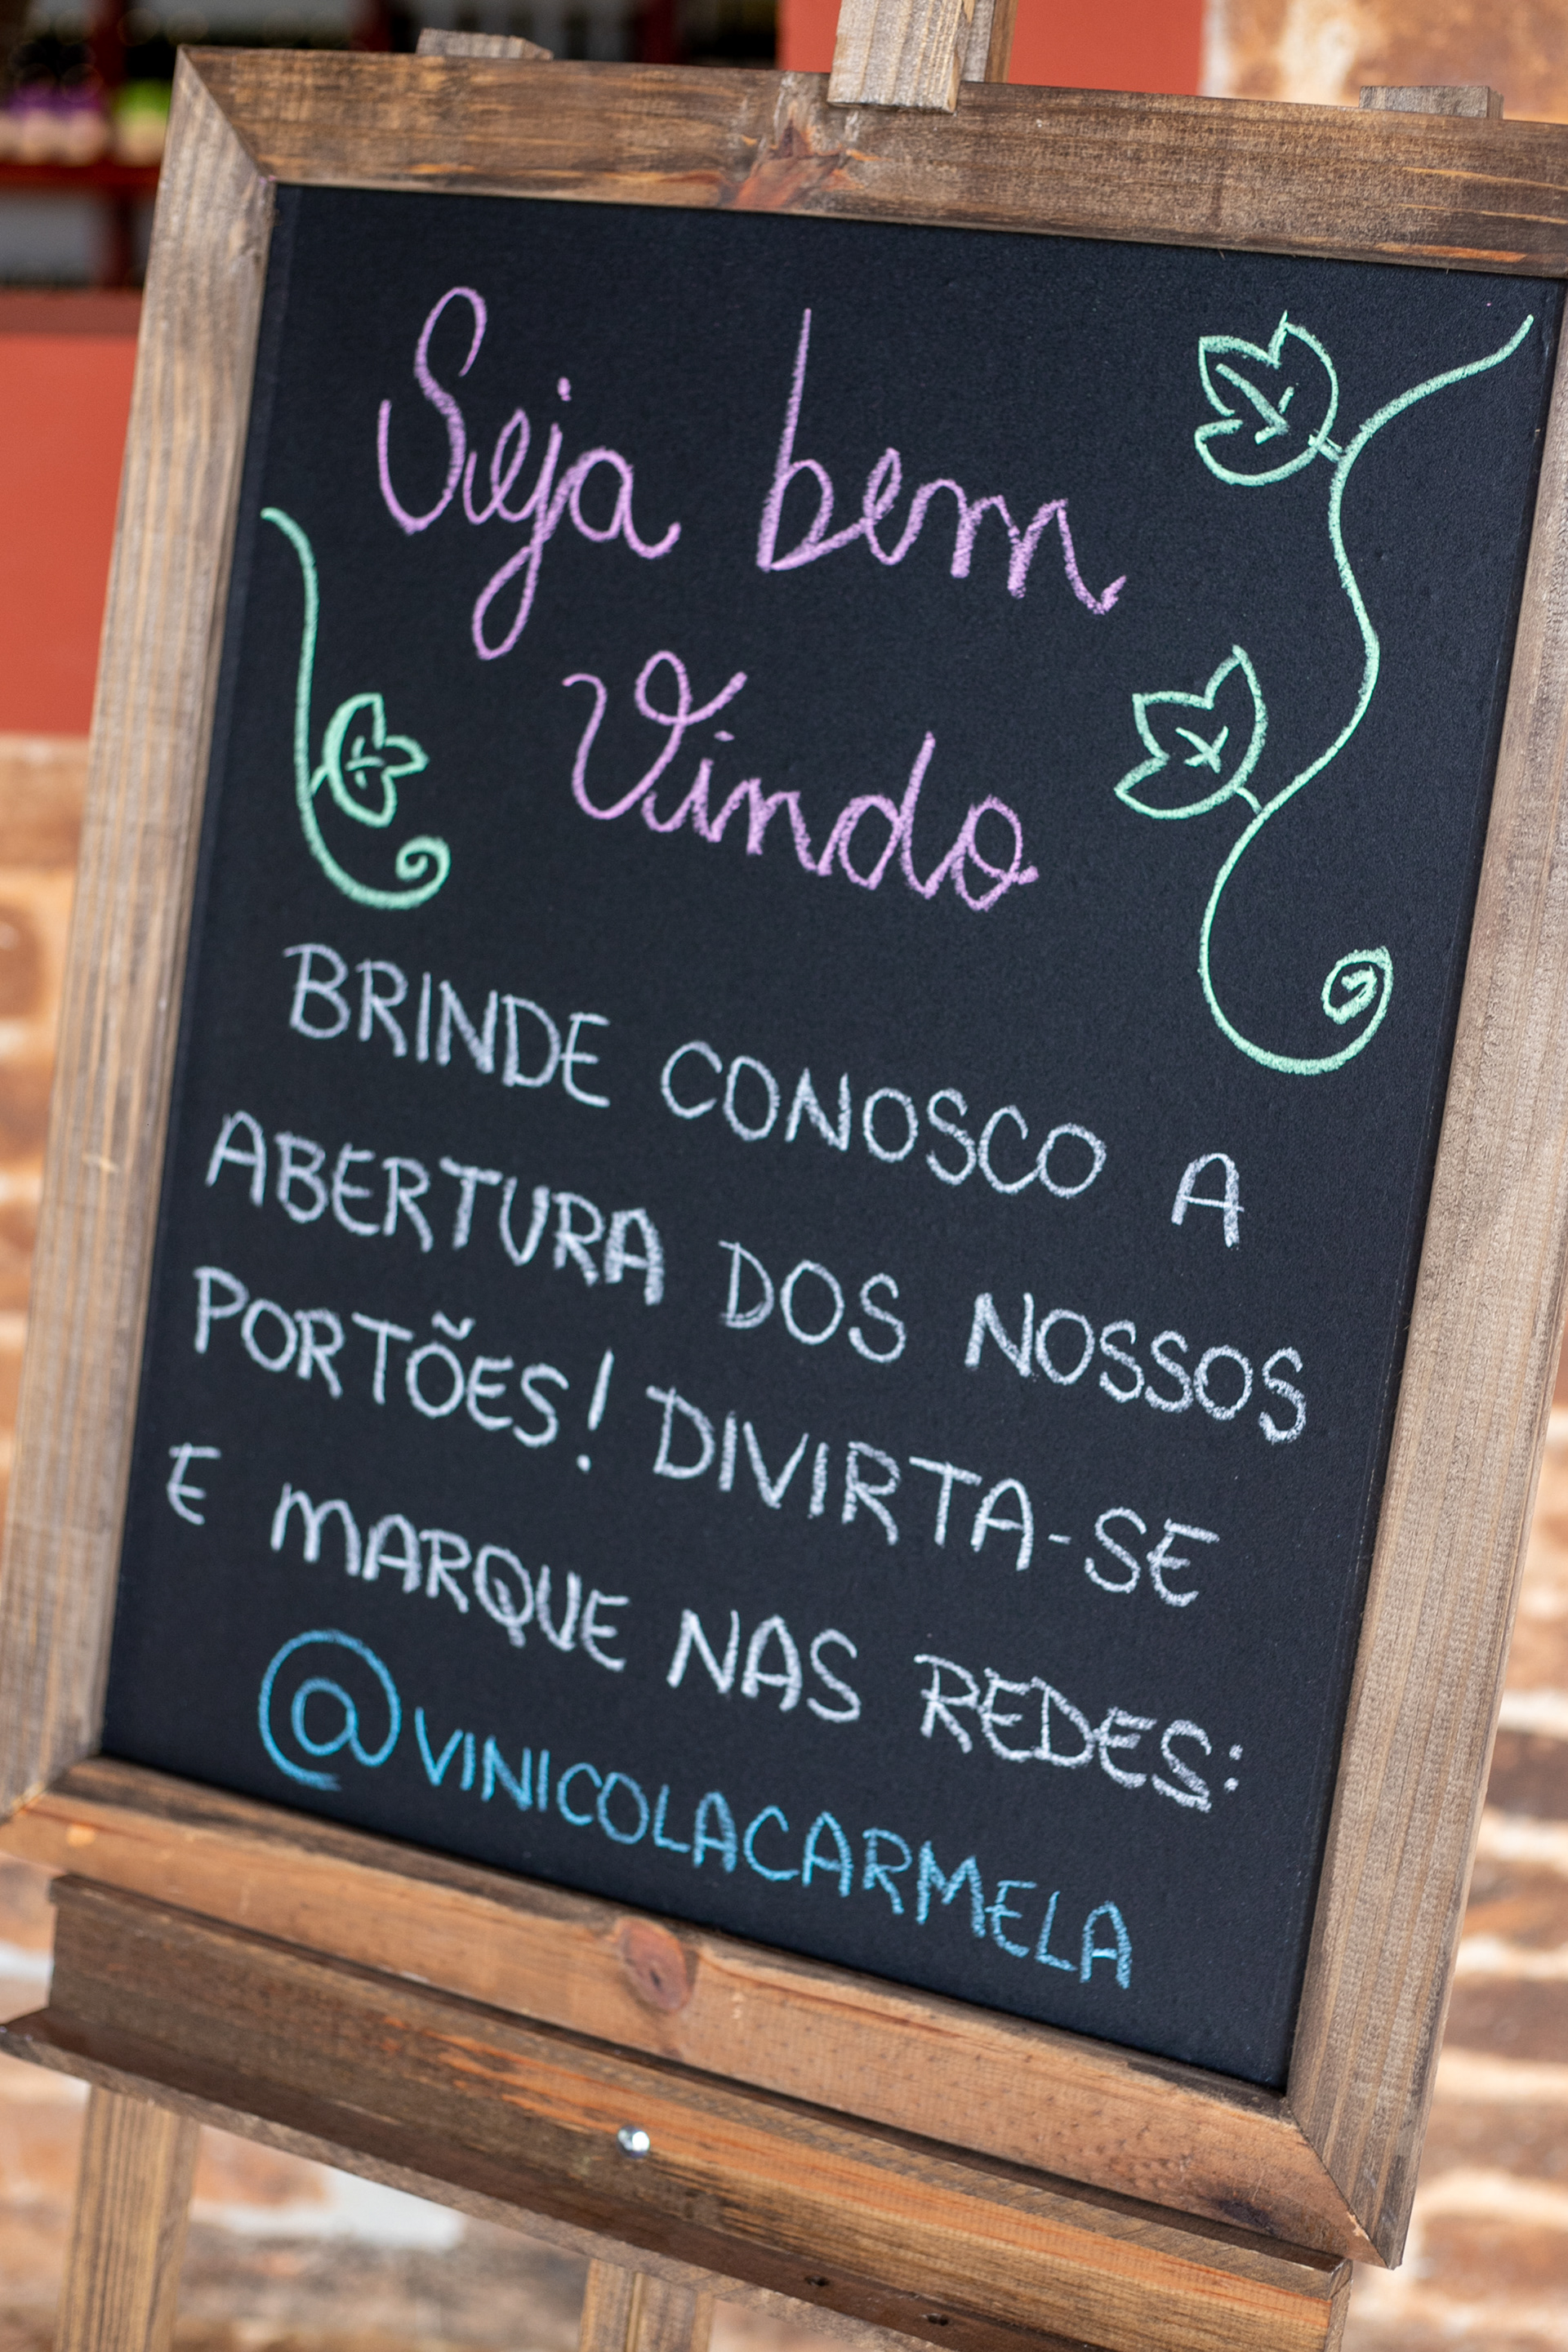 Seja bem
Vindo
BRINDE CONOSCO A
ABERTURA DOS NOSSOS
PORTÕES! DIVIRTA-SE
E MARQUE NAS REDES:
@VINICOLACARMELA